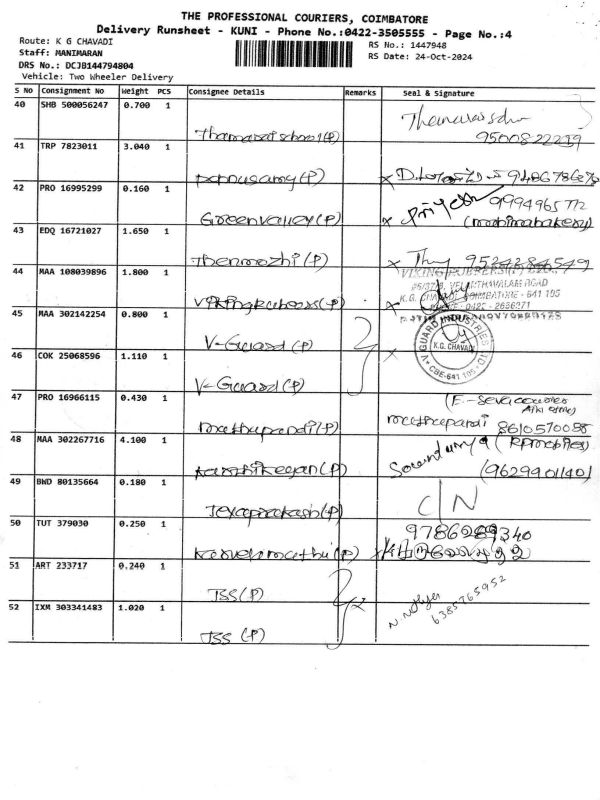 THE PROFESSIONAL COURIERS, COIMBATORE
Delivery Runsheet - KUNI - Phone No.:0422-3505555 - Page No.:4
Route: K G CHAVADI
RS No.: 1447948
Staff: MANIMARAN
RS Date: 24-Oct-2024
DRS No.: DCJB144794804
Vehicle: Two Wheeler Delivery
S No Consignment No Weight PCS Consignee Details Remarks Seal & Signature
40 SHB 500056247 0.700 1
Thamarai school (P) 9500822239
41 TRP 7823011 3.040 1
(P)
42 PRO 16995299 0.160 1
Green valley (P) Priyesh 9994965772
(mahimabakery)
43 EDQ 16721027 1.650 1
Thenmozhi (P) 9524284549
44 MAA 108039896 1.800 1
VIKING RUBBERS (P) LTD.
K.G. CHAVADI, COIMBATORE - 641 105
(P)
45 MAA 302142254 0.800 1
V-Guard (P)
V-GUARD INDUSTRIES LTD
K.G. CHAVADI
CBE-641 105
46 COK 25068596 1.110 1
V-Guard (P)
47 PRO 16966115 0.430 1
(E.-Seva courier
muthupandi (P) muthupandi 8610570088
48 MAA 302267716 4.100 1
Karthikeyan (P) (9629901140)
49 BWD 80135664 0.180 1
Jeyaprakash (P) C/N
50 TUT 379030 0.250 1
9786289340
(P)
51 ART 233717 0.240 1
JSS (P)
6385765952
52 IXM 303341483 1.020 1
JSS (P)